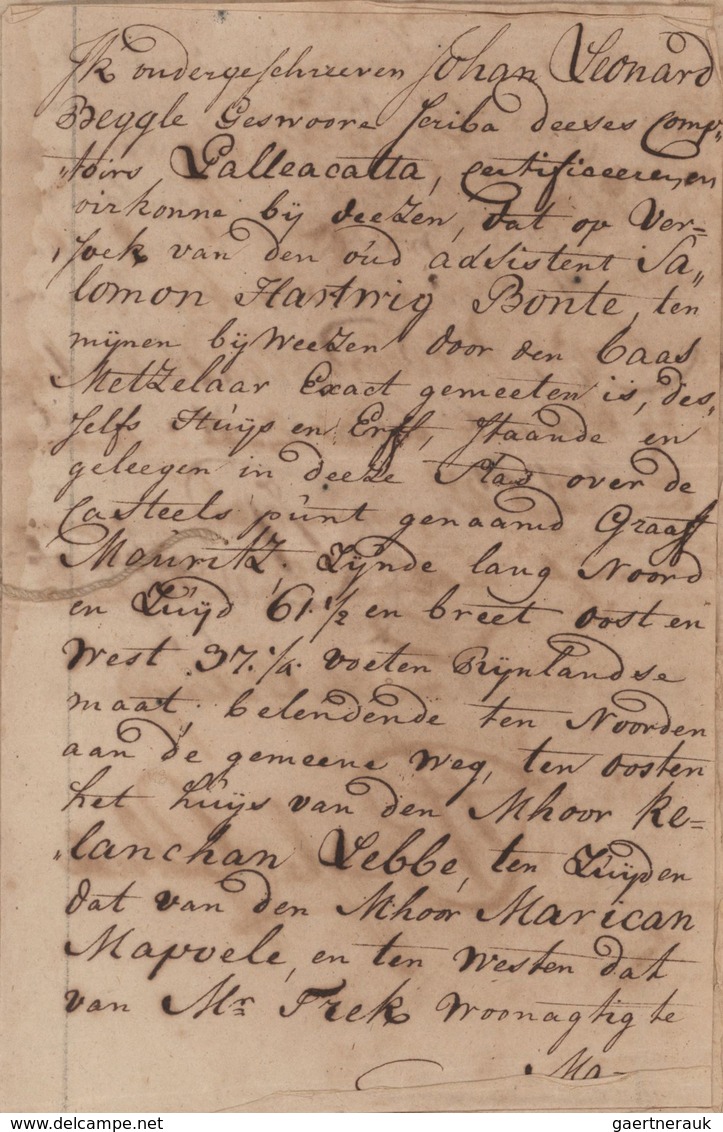 Ik ondergeschreeven Johan Leonard
Beggle Geswoore Scriba deeses Comp„
„toirs Palleacatta, certificeere, en
oirkonne bij deezen, dat op Ver=
„soek van den oud adsistent Sa„
lomon Hartwig Bonte, ten
mijnen bijweezen door den baas
Metzelaar Exact gemeeten is, des„
zelfs Huijs en Erff, staande en
geleegen in deeze Stad over de
Casteels punt genaamd Graaff
Mouritz, Zijnde lang Noord
en Zuijd 61.1/2 en breet oost en
West 37.1/4. voeten Rijnlandse
maat, belendende ten Noorden
aan de gemeene weg, ten oosten
het huijs van den Mhoor Ke=
„lanchan Lebbe, ten Zuijden
dat van den Mhoor Marican
Mapoele, en ten westen dat
van Mr. Frek woonagtig te
Ma-
gaertnerauk